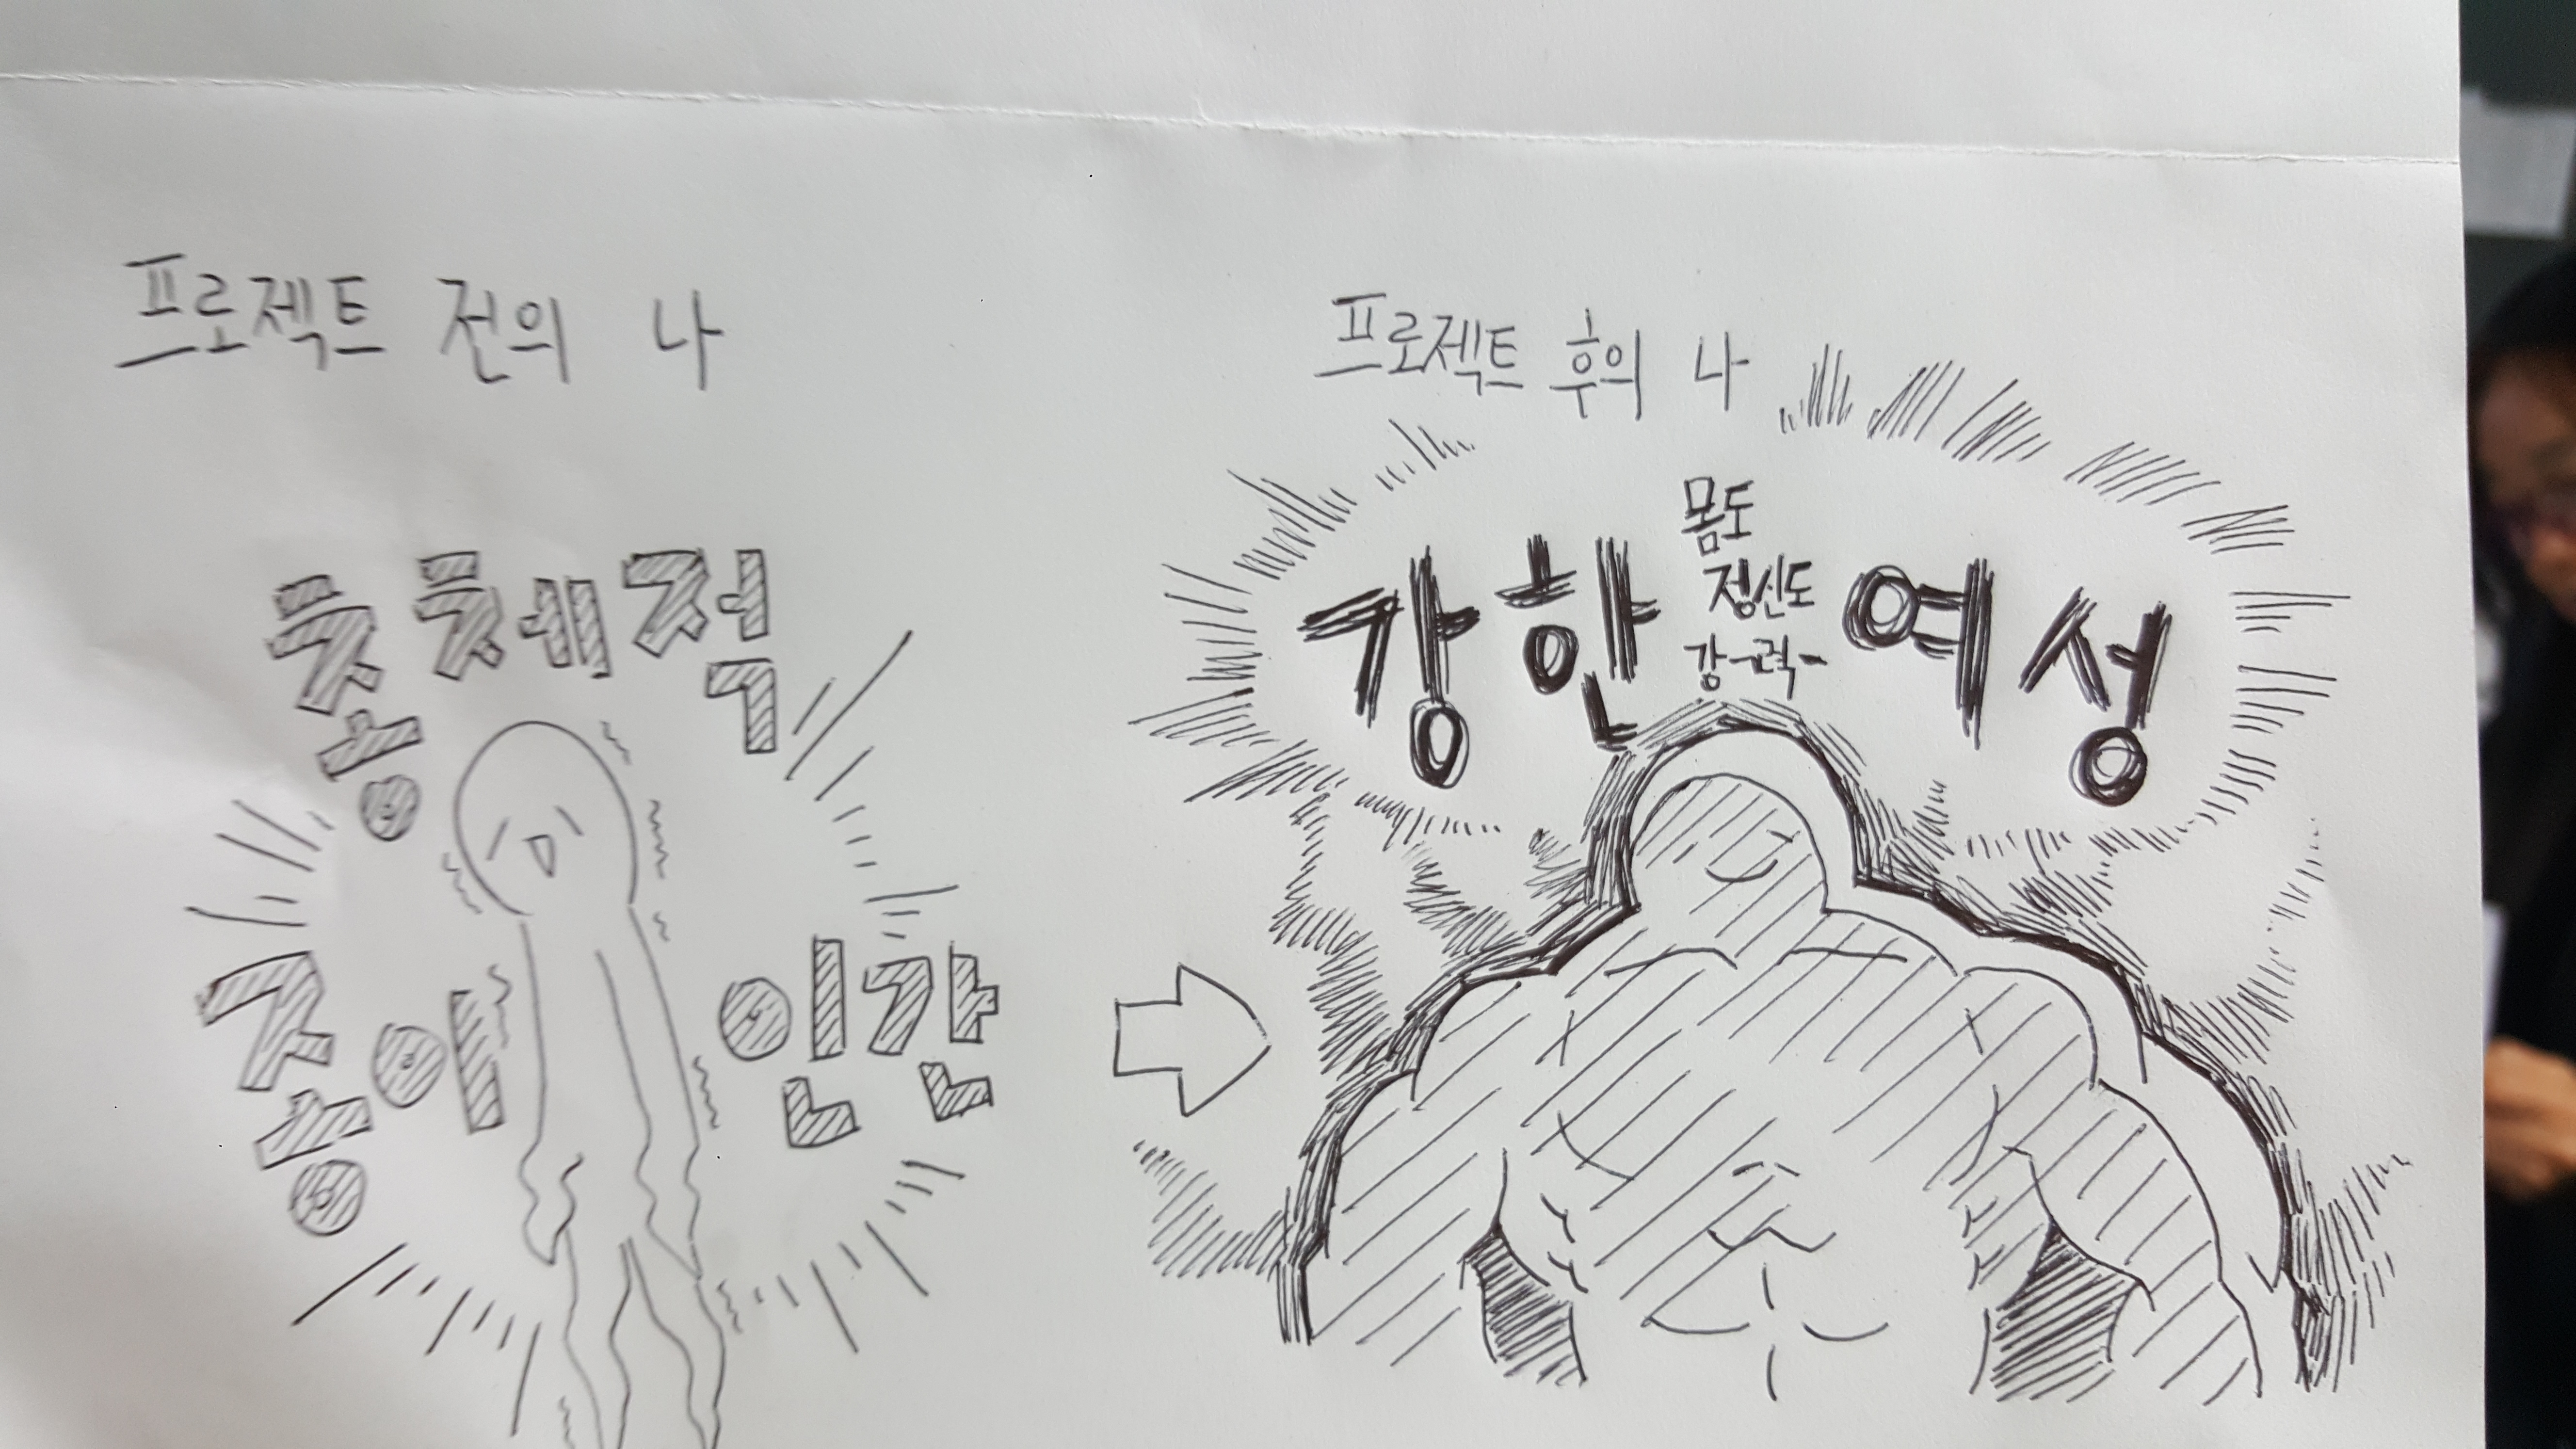 프로젝트 전의 나
총체적
종이 인간
프로젝트 후의 나
몸도
정신도
강-력-
강한 여성